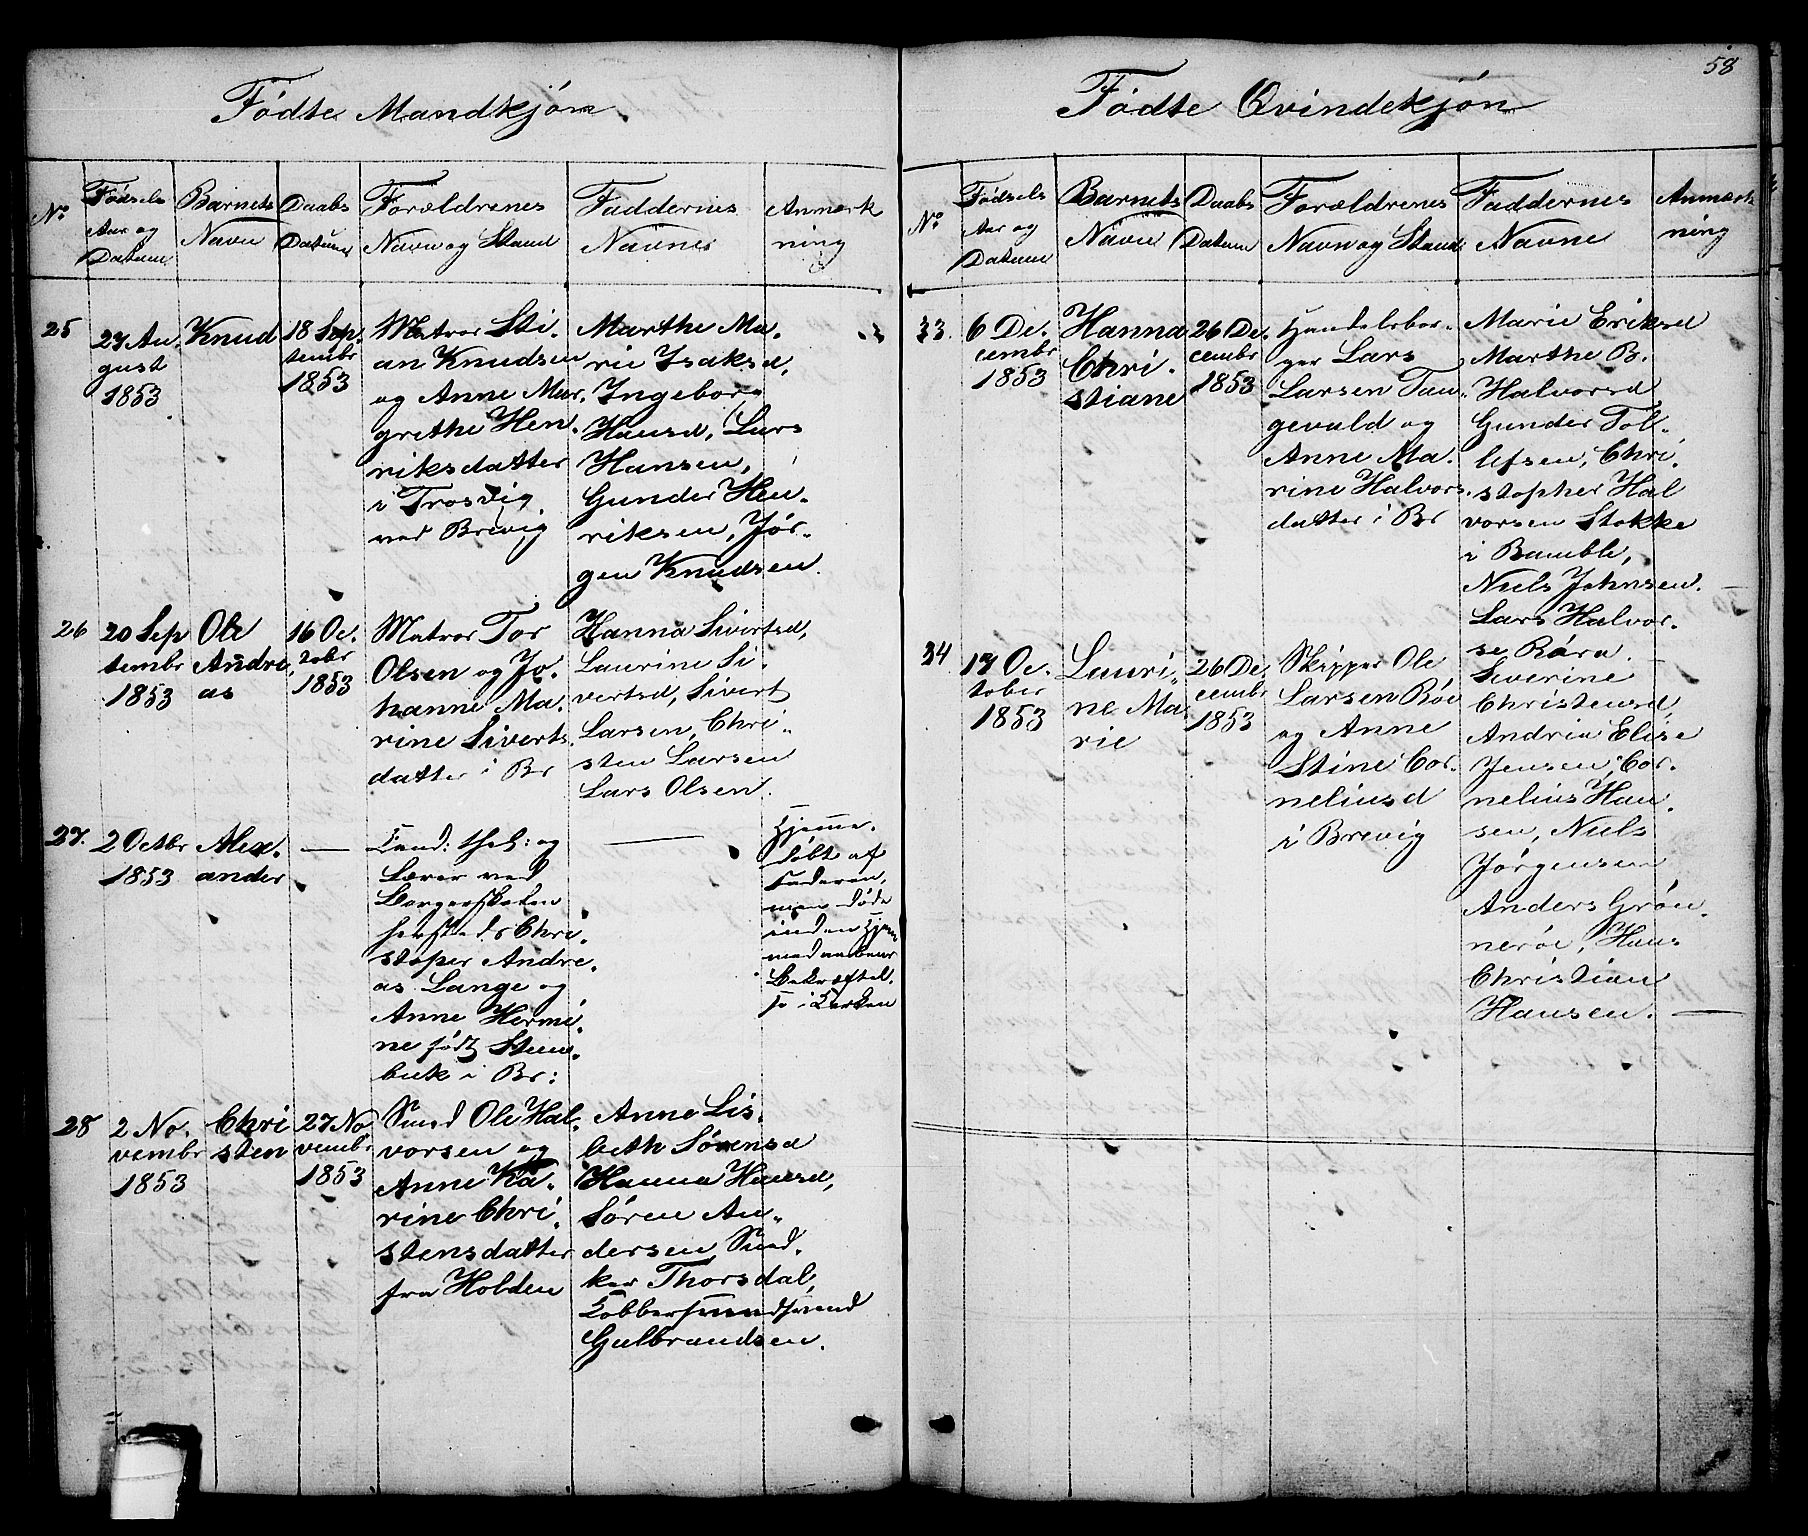 58
Fødte Mandkjøn.
No
Fødsels
Aar og
Datum
Barnets
Navn
Daabs
Datum
Forældrenes
Navn og Stand
Faddernes
Navnes
Anmærk
ning
25
27 Au
gust
1853.
Knud
18 Sep
tembr
1853
Matros Sti-
an Knudsen
og Anne Mar.
grethe Hen
riksdatter
i Trosvig
ved Brevig
Marthe Ma-
rie Isaksd,
Ingeborg
Hansd, Lars
Hansen,
Gunder Hen-
riksen, Jør-
gen Knudsen.
26
20 Sep
tembr
1853
Ole
Andre
as
16 Oc.
tobr
1853
Matros Tor
Olsen og Jo-
hanne Ma-
rine Siverts.
datter i Br
Hanna Sivertsd,
Laurine Si-
vertsd, Sivert
Larsen, Chri-
sten Larsen
Lars Olsen.
27.
2 Octbr
1853
Alex-
ander
—
Cand: thel: og
Lærer ved
Borgerskolen
hersteds Chri-
stoper Andre-
as Lange og
Anne Hermi-
ne født Steen-
buk i Br:
—
Hjemme-
døbt af
Faderen,
men døde
inden Hjem
medaabens
Bekræftel-
se i Kirken
28
2 No.
vembr
1853
Chri
sten
27 No
vembr
1853
Smed Ole Hal.
vorsen og
Anne Ka-
rine Chri-
stensdatter
fra Holden
Anne Lis-
beth Sørensd
Hanna Hansd,
Søren An-
dersen, Sned.
ker Thorsdal,
Kobbersmedsvend
Gulbrandsen.
Fødte Qvindekjøn
No
Fødsels
Aar og
Datum
Barnets
Navn
Daabs
Datum
Forældrenes
Navn og Stand
Faddernes
Navne
Anmærk
ning
33.
6 De.
cembr
1853
Hanna
Chri-
stiane
26 De.
cembr
1853
Handelsbor-
ger Lars
Larsen Tan-
gevald og
Anne Ma-
rine Halvors.
datter i Br
Marie Eriksd
Marthe B.
Halvorsd
Gunder Tol-
lefsen, Chri-
stopher Hal
vorsen Stokke
i Bamble,
Niels Johnsen.
Lars Halvor-
se Røra.
34
17 Oc
tober
1853
Lauri-
ne Ma
rie
26 De.
cembr
1853
Skipper Ole
Larsen Røe
og Anne
Stine Cor.
neliusd
i Brevig
Siverine
Christensd,
Andrea Elise
Jensen, Cor-
nelius Han
sen, Niels
Jørgensen
Anders Grøn-
nerøe, Hans
Christian
Hansen. —